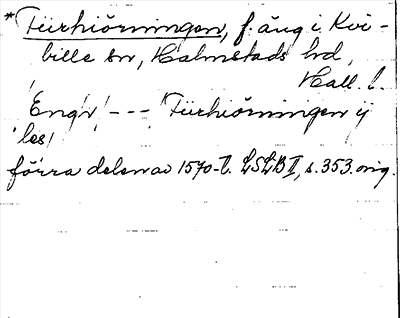 *Fiirhiörningen, f. äng i Kvi-
bille sn, Halmstads hd,
Hall. l.
'Engn' --- 'Fiirhiörningen ij
les'
förra delen av 1570-t. LSLB II, s. 353. orig.